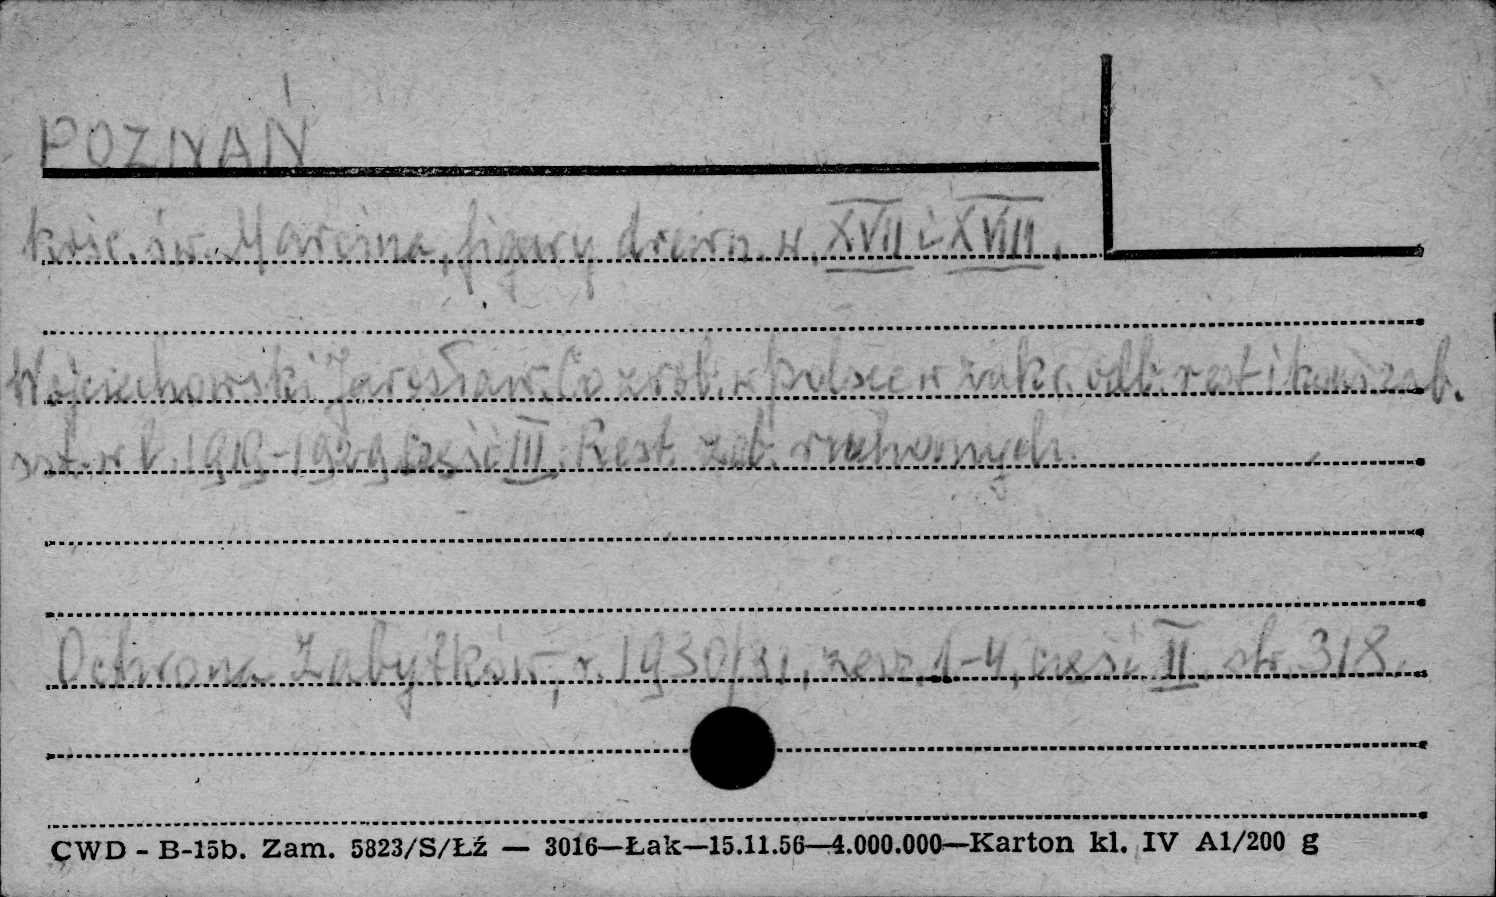 POZNAŃ
kość. św. Marcina, figury drewn. w. XVII i XVIII.
Wojciechowski Jarosław. Co zrob. w Polsce w zakr. odb. rest i kons zab.
szt. w l. 1919-1929 Część III. Rest. zab. ruchomych.
Ochrona Zabytków, r. 1930/31, zesz. 1-4, część II. str. 318.
CWD - B-15b. Zam. 5823/S/Łź — 3016—Łak—15.11.56—4.000.000—Karton kl. IV A1/200 g